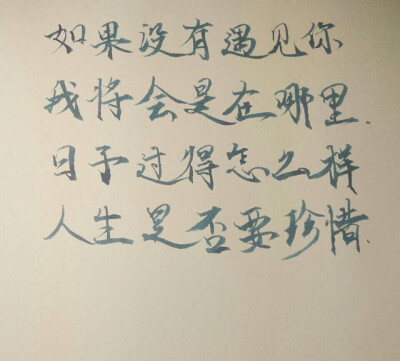 如果没有遇见你
我将会是在哪里.
日子过得怎么样
人生是否要珍惜.